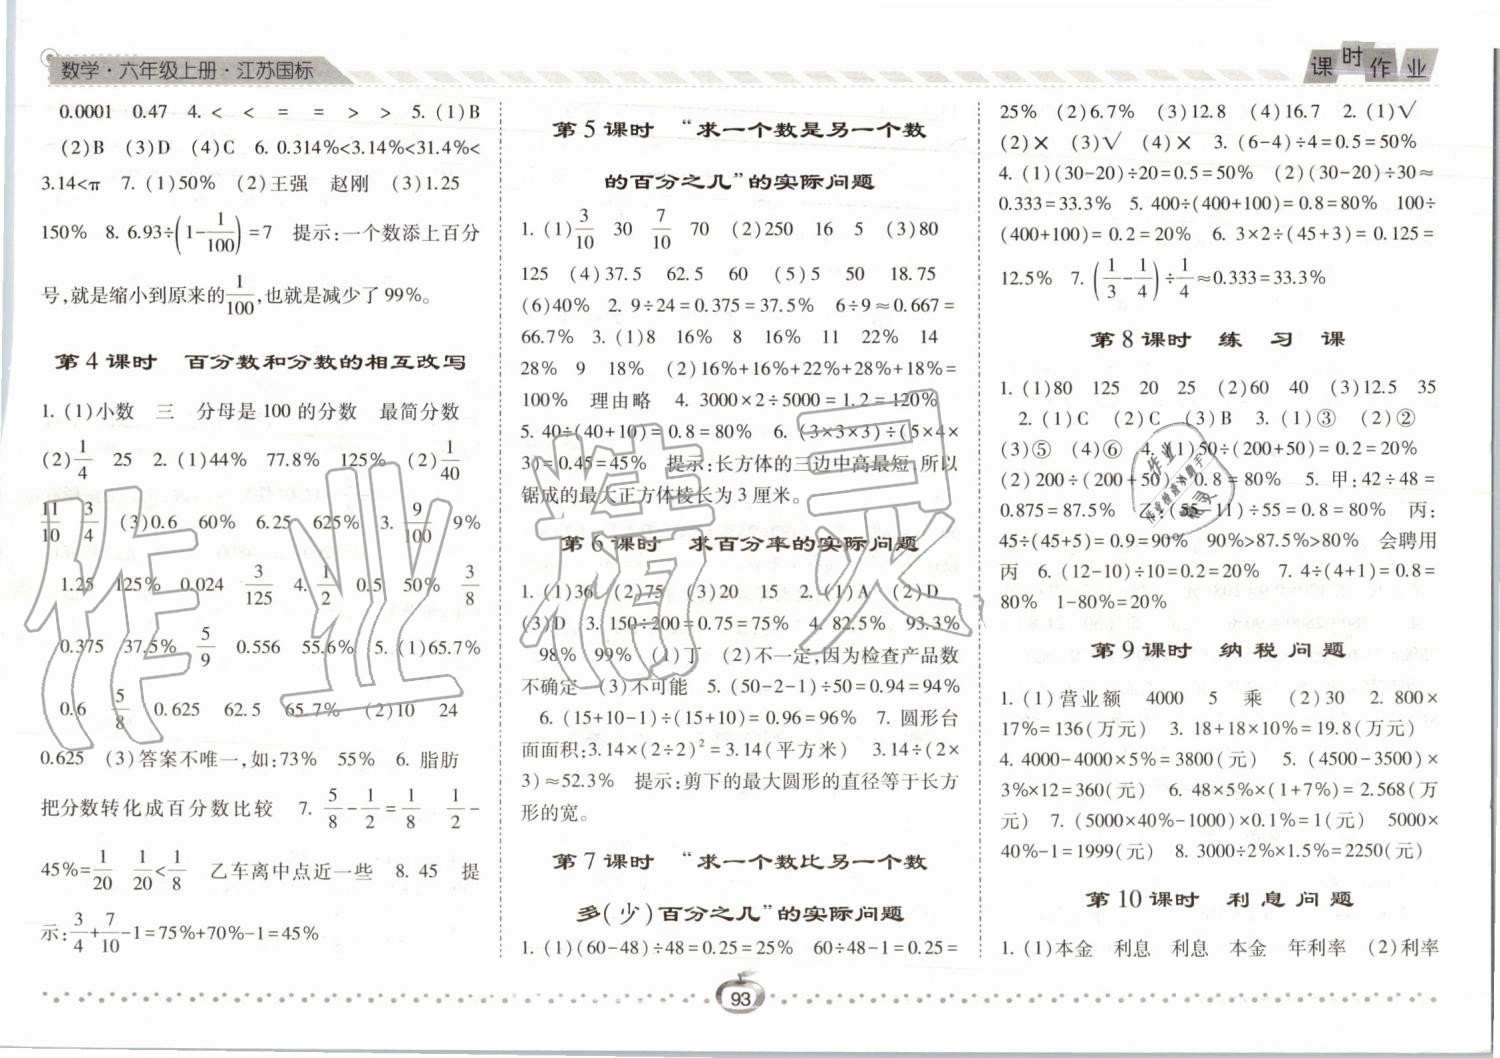 数学·六年级上册·江苏国标
课时作业
0.0001 0.47 4. < < = = > > 5. (1)B
(2)B (3)D (4)C 6. 0.314%<3.14%<31.4%<
3.14<π 7. (1)50% (2)王强 赵刚 (3)1.25
150% 8. 6.93÷(1-1/100)=7 提示:一个数添上百分
号,就是缩小到原来的1/100,也就是减少了99%。
第4课时 百分数和分数的相互改写
1. (1)小数 三 分母是100的分数 最简分数
(2)1/4 25 2. (1)44% 77.8% 125% (2)1/40
11/10 3/4 (3)0.6 60% 6.25 625% 3. 9/100 9%
1.25 125% 0.024 3/125 4. 1/2 0.5 50% 3/8
0.375 37.5% 5/9 0.556 55.6% 5. (1)65.7%
0.6 5/8 0.625 62.5 65.7% (2)10 24
0.625 (3)答案不唯一,如:73% 55% 6. 脂肪
把分数转化成百分数比较 7. 5/8-1/2=1/8 1/2-
45%=1/20 1/20<1/8 乙车离中点近一些 8. 45 提
示:3/4+7/10-1=75%+70%-1=45%
第5课时 “求一个数是另一个数
的百分之几”的实际问题
1. (1)3/10 30 7/10 70 (2)250 16 5 (3)80
125 (4)37.5 62.5 60 (5)5 50 18.75
(6)40% 2. 9÷24=0.375=37.5% 6÷9≈0.667=
66.7% 3. (1)8 16% 8 16% 11 22% 14
28% 9 18% (2)16%+16%+22%+28%+18%=
100% 理由略 4. 3000×2÷5000=1.2=120%
5. 40÷(40+10)=0.8=80% 6. (3×3×3)÷(5×4×
3)=0.45=45% 提示:长方体的三边中高最短,所以
锯成的最大正方体棱长为3厘米。
第6课时 求百分率的实际问题
1. (1)36 (2)75 (3)20 15 2. (1)A (2)D
(3)D 3. 150÷200=0.75=75% 4. 82.5% 93.3%
98% 99% (1)丁 (2)不一定,因为检查产品数
不确定 (3)不可能 5. (50-2-1)÷50=0.94=94%
6. (15+10-1)÷(15+10)=0.96=96% 7. 圆形台
面面积:3.14×(2÷2)²=3.14(平方米) 3.14÷(2×
3)≈52.3% 提示:剪下的最大圆形的直径等于长方
形的宽。
第7课时 “求一个数比另一个数
多(少)百分之几”的实际问题
1. (1)(60-48)÷48=0.25=25% 60÷48-1=0.25=
25% (2)6.7% (3)12.8 (4)16.7 2. (1)√
(2)× (3)√ (4)× 3. (6-4)÷4=0.5=50%
4. (1)(30-20)÷20=0.5=50% (2)(30-20)÷30≈
0.333=33.3% 5. 400÷(400+100)=0.8=80% 100÷
(400+100)=0.2=20% 6. 3×2÷(45+3)=0.125=
12.5% 7. (1/3-1/4)÷1/4≈0.333=33.3%
第8课时 练习课
1. (1)80 125 20 25 (2)60 40 (3)12.5 35
2. (1)C (2)C (3)B 3. (1)③ (2)②
(3)⑤ (4)⑥ 4. (1)50÷(200+50)=0.2=20%
(2)200÷(200+50)=0.8=80% 5. 甲:42÷48=
0.875=87.5% 乙:(55-11)÷55=0.8=80% 丙:
45÷(45+5)=0.9=90% 90%>87.5%>80% 会聘用
丙 6. (12-10)÷10=0.2=20% 7. 4÷(4+1)=0.8=
80% 1-80%=20%
第9课时 纳税问题
1. (1)营业额 4000 5 乘 (2)30 2. 800×
17%=136(万元) 3. 18+18×10%=19.8(万元)
4. 4000-4000×5%=3800(元) 5. (4500-3500)×
3%×12=360(元) 6. 48×5%×(1+7%)=2.568(万
元) 7. (5000×40%-1000)×0.1%=1(元) 5000×
40%-1=1999(元) 8. 3000÷2%×1.5%=2250(元)
第10课时 利息问题
1. (1)本金 利息 利息 本金 年利率 (2)利率
93
作业精灵